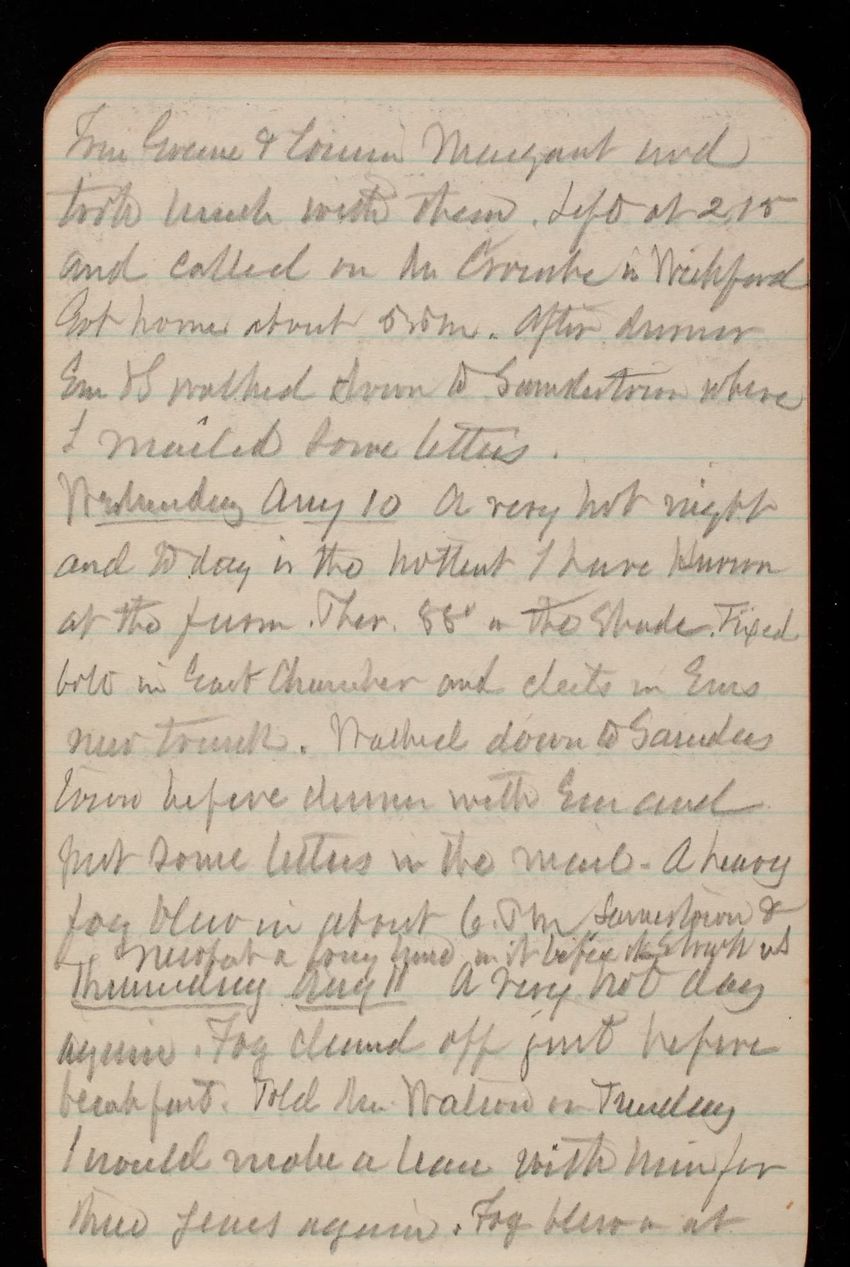 Tom Greene & Cousin Margaret and
took lunch with them. Left at 2.15
and called on Mr Crombe in Wickford
Got home about 5 P.M. After dinner
Em & I walked down to Saunderstown where
I mailed some letters.
Wednesday Aug 10 A very hot night
and to day is the hottest I have known
at the farm. Ther. 88° in the Shade. Fixed
bolt in East Chamber and cleats in Ems
new trunk. Walked down to Saunders
town before dinner with Em and
put some letters in the mail - A heavy
fog blew in about 6. P.M. Jamestown &
Newport a long time in it before it struck us
Thursday Aug 11 A very hot day
again. Fog cleared off just before
breakfast. Told Mr Watson on Tuesday
I would make a lease with him for
three years again. Fog blew in at